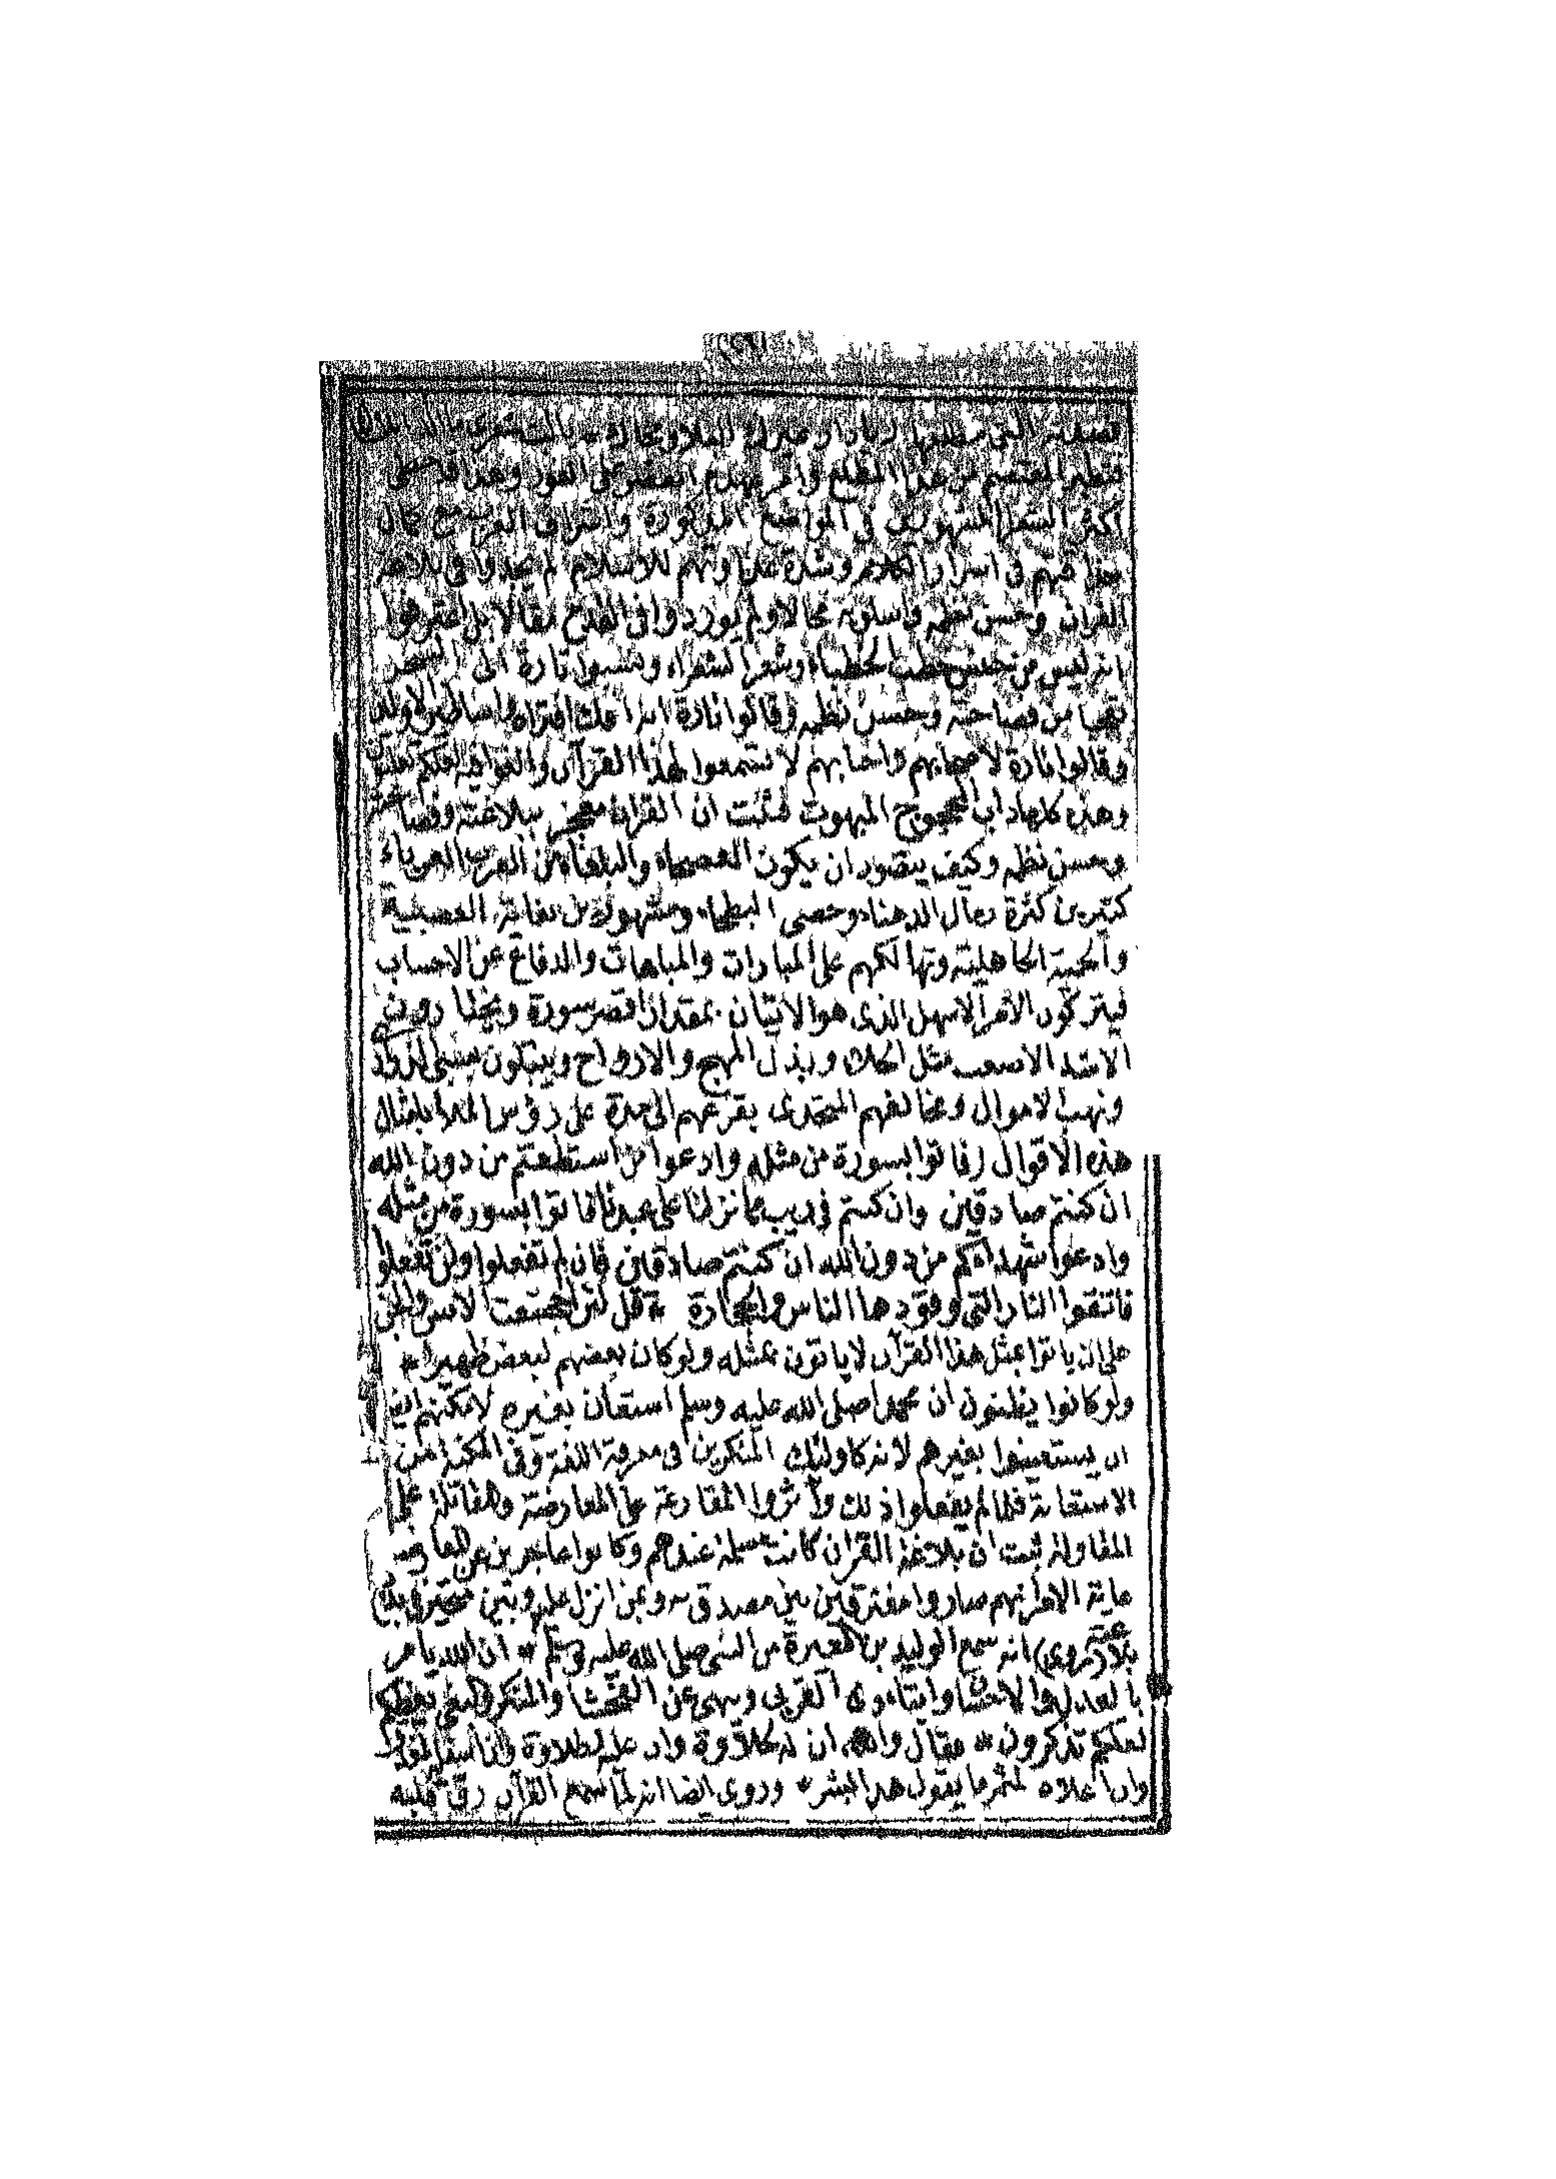 قصيدته التي مطلعها (يا دار غيرك البلا ومحاك * يا ليت شعري ما الذي ابلاك)
فتطير المعتصم من هذا المطلع وامر بهدم القصر على الفور وهذا قد خطى
أكثر الشعراء المشهورين في المواضع المذكورة واشراف العرب مع كمال
حذاقتهم في اسرار الكلام وشدة عداوتهم للاسلام لم يجدوا في بلاغة
القران وحسن نظمه واسلوبه مجالا ولم يوردوا في القدح مقالا بل اعترفوا
انه ليس من جنس خطب الخطباء وشعر الشعراء ونسبوه تارة الى السحر
تعجبا من فصاحته وحسن نظمه وقالوا تارة انه افك افتراه واساطير الاولين
وقالوا تارة لاصحابهم واحبابهم لا تسمعوا لهذا القرآن والغوا فيه لعلكم تغلبون
وهذه كلها داب المحجوج المبهوت فثبت ان القران معجز ببلاغته وفصاحته
وحسن نظمه وكيف يتصور ان يكون الفصحاء والبلغاء من العرب العرباء
كثيرين كثرة رمال الدهناء وحصى البطحاء ومشهورين بغاية العصبية
والحمية الجاهلية وتهالكهم على المبارات والمباهات والدفاع عن الاحساب
فيتركون الامر الاسهل الذي هو الاتيان بمقدار اقصر سورة ويختارون
الاشد الاصعب مثل الجلاء وبذل المهج والارواح ويبتلون بسبى الذرارى
ونهب الاموال ومخالفهم المتحدى يقرعهم الى مدة على رؤس الملأ بامثال
هذه الاقوال (فاتوا بسورة من مثله وادعوا من استطعتم من دون الله
ان كنتم صادقين وان كنتم في ريب مما نزلنا على عبدنا فاتوا بسورة من مثله
وادعوا شهداءكم من دون الله ان كنتم صادقين فان لم تفعلوا ولن تفعلوا
فاتقوا النار التي وقودها الناس والحجارة * قل لئن اجتمعت الانس والجن
على ان ياتوا بمثل هذا القرآن لا ياتون بمثله ولو كان بعضهم لبعض ظهيرا *
ولو كانوا يظنون ان محمدا صلى الله عليه وسلم استعان بغيره لامكنهم ايضا
ان يستعينوا بغيرهم لانه كاولئك المنكرين في معرفة اللغة وفي المكنة من
الاستعانة فلما لم يفعلوا ذلك وآثروا المقارعة على المعارضة والمقاتلة على
المقاولة ثبت ان بلاغة القران كانت مسلمة عندهم وكانوا عاجزين عن المعارضة
غاية الامر انهم صاروا مفترقين بين مصدق به وبمن انزل عليه وبين متحير في بديع
بلاغته (روى) انه سمع الوليد بن المغيرة من النبي صلى الله عليه وسلم * ان الله يامر
بالعدل والاحسان وايتاء ذى القربى وينهى عن الفحشا والمنكر والبغي يعظكم
لعلكم تذكرون * فقال والله ان له لحلاوة وان عليه لطلاوة وان اسفله لمغدق
وان اعلاه لمثمر ما يقول هذا البشر * وروى ايضا انه لما سمع القرآن رق قلبه